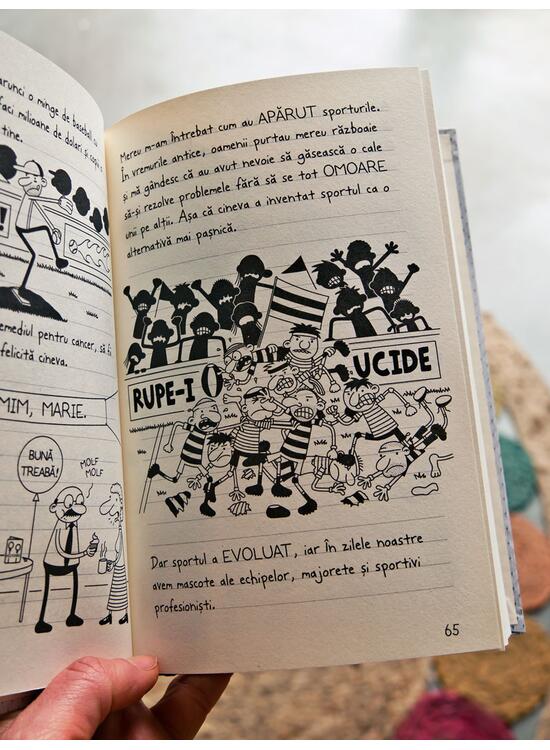 arunci o minge de baseball cu
faci milioane de dolari și copii
tine.
emediul pentru cancer, să fi
felicită cineva.
MIM, MARIE.
BUNĂ
TREABĂ!
MOLF
MOLF
Mereu m-am întrebat cum au APĂRUT sporturile.
În vremurile antice, oamenii purtau mereu războaie
și mă gândesc că au avut nevoie să găsească o cale
să-și rezolve problemele fără să se tot OMOARE
unii pe alții. Așa că cineva a inventat sportul ca o
alternativă mai pașnică.
RUPE-I O
UCIDE
Dar sportul a EVOLUAT, iar în zilele noastre
avem mascote ale echipelor, majorete și sportivi
profesioniști.
65